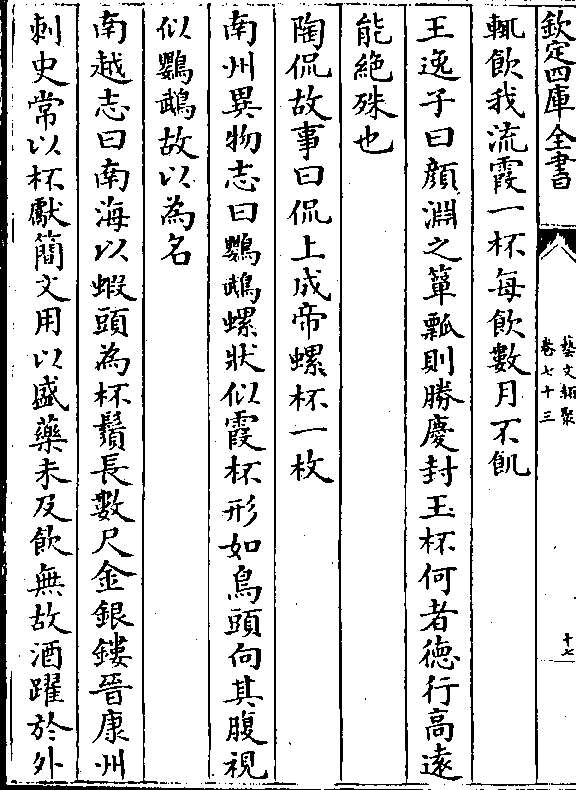 欽定四庫全書
藝文類聚
卷七十三
十七
輒飲我流霞一杯每飲數月不飢
王逸子曰顔淵之簞瓢則勝慶封玉杯何者德行高遠
能絶殊也
陶侃故事曰侃上成帝螺杯一枚
南州異物志曰鸚鵡螺狀似霞杯形如鳥頭向其腹視
似鸚鵡故以為名
南越志曰南海以蝦頭為杯鬚長數尺金銀鏤晉康州
刺史常以杯獻簡文用以盛藥未及飲無故酒躍於外